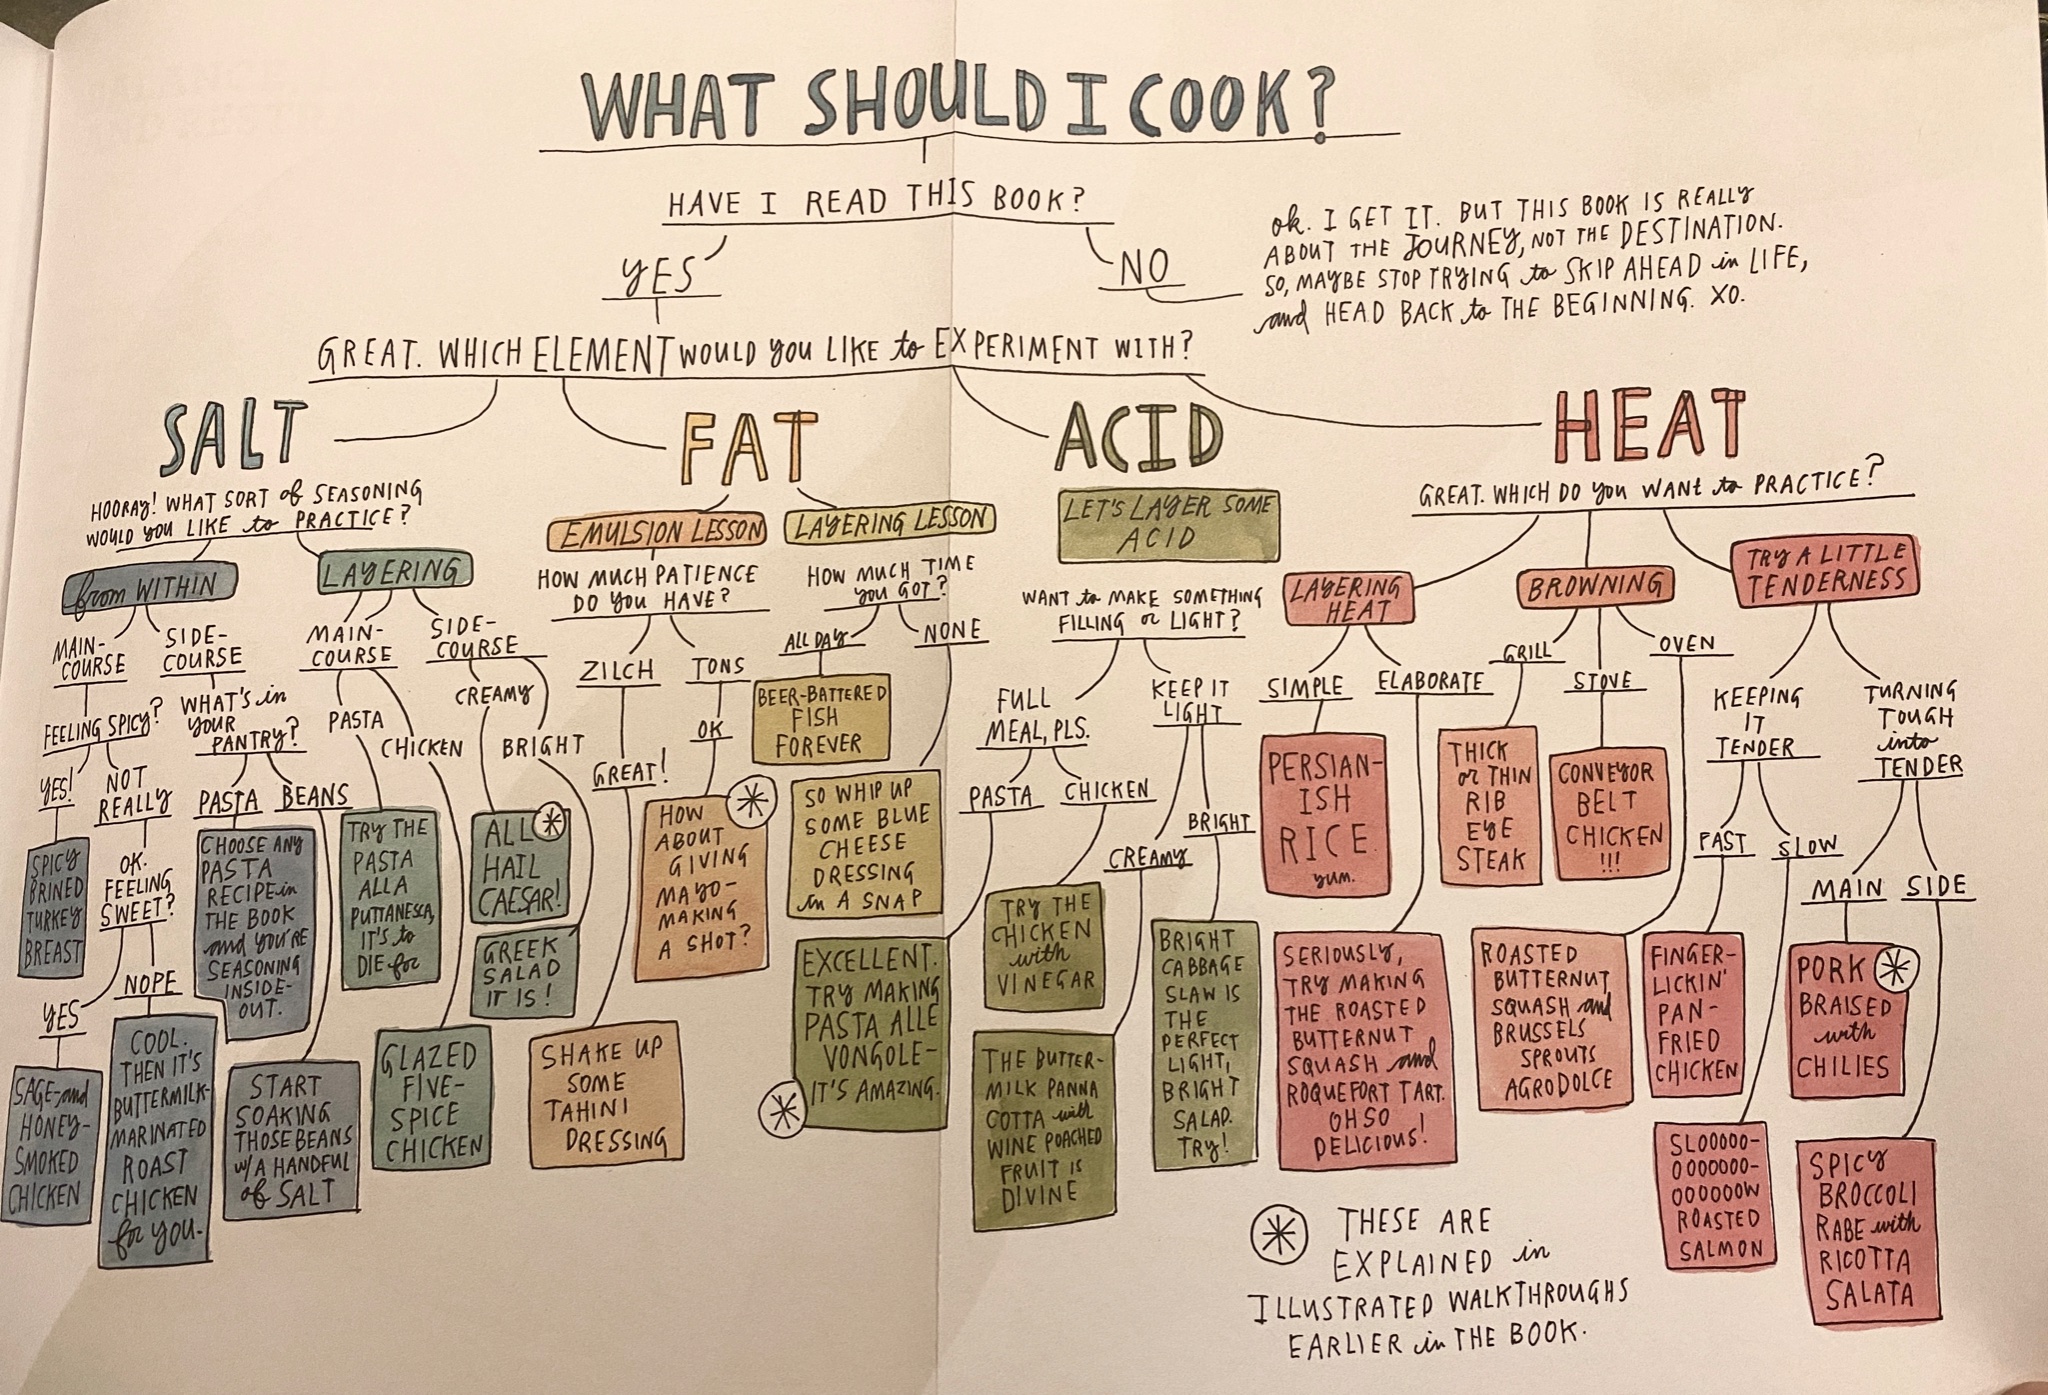 WHAT SHOULD I COOK?
HAVE I READ THIS BOOK?
YES
NO
ok. I GET IT. BUT THIS BOOK IS REALLY
ABOUT THE JOURNEY, NOT THE DESTINATION.
SO, MAYBE STOP TRYING to SKIP AHEAD in LIFE,
and HEAD BACK to THE BEGINNING. XO.
GREAT. WHICH ELEMENT WOULD YOU LIKE to EXPERIMENT WITH?
SALT
HOORAY! WHAT SORT of SEASONING
WOULD YOU LIKE to PRACTICE?
from WITHIN
MAIN-
COURSE
FEELING SPICY?
YES!
SPICY
BRINED
TURKEY
BREAST
NOT
REALLY
OK.
FEELING
SWEET?
YES
SAGE-and
HONEY-
SMOKED
CHICKEN
NOPE
COOL.
THEN IT'S
BUTTERMILK-
MARINATED
ROAST
CHICKEN
for YOU.
SIDE-
COURSE
WHAT'S in
YOUR
PANTRY?
PASTA
CHOOSE ANY
PASTA
RECIPE in
THE BOOK
and YOU'RE
SEASONING
INSIDE-
OUT.
BEANS
START
SOAKING
THOSE BEANS
W/A HANDFUL
of SALT
LAYERING
MAIN-
COURSE
PASTA
TRY THE
PASTA
ALLA
PUTTANESCA,
IT'S to
DIE for
CHICKEN
GLAZED
FIVE-
SPICE
CHICKEN
SIDE-
COURSE
CREAMY
ALL
HAIL
CAESAR!
BRIGHT
GREEK
SALAD
IT IS!
FAT
EMULSION LESSON
HOW MUCH PATIENCE
DO YOU HAVE?
ZILCH
GREAT!
SHAKE UP
SOME
TAHINI
DRESSING
TONS
OK
HOW
ABOUT
GIVING
MAYO-
MAKING
A SHOT?
LAYERING LESSON
HOW MUCH TIME
YOU GOT?
ALL DAY
BEER-BATTERED
FISH
FOREVER
NONE
SO WHIP UP
SOME BLUE
CHEESE
DRESSING
in A SNAP
ACID
LET'S LAYER SOME
ACID
WANT to MAKE SOMETHING
FILLING or LIGHT?
FULL
MEAL, PLS.
PASTA
EXCELLENT.
TRY MAKING
PASTA ALLE
VONGOLE-
IT'S AMAZING.
CHICKEN
TRY THE
CHICKEN
with
VINEGAR
KEEP IT
LIGHT
CREAMY
THE BUTTER-
MILK PANNA
COTTA with
WINE POACHED
FRUIT IS
DIVINE
BRIGHT
BRIGHT
CABBAGE
SLAW IS
THE
PERFECT
LIGHT,
BRIGHT
SALAD.
TRY!
HEAT
GREAT. WHICH DO YOU WANT to PRACTICE?
LAYERING
HEAT
SIMPLE
PERSIAN-
ISH
RICE
yum.
ELABORATE
SERIOUSLY,
TRY MAKING
THE ROASTED
BUTTERNUT
SQUASH and
ROQUEFORT TART.
OH SO
DELICIOUS!
BROWNING
GRILL
THICK
or THIN
RIB
EYE
STEAK
STOVE
CONVEYOR
BELT
CHICKEN
!!!
OVEN
ROASTED
BUTTERNUT
SQUASH and
BRUSSELS
SPROUTS
AGRODOLCE
TRY A LITTLE
TENDERNESS
KEEPING
IT
TENDER
FAST
FINGER-
LICKIN'
PAN-
FRIED
CHICKEN
SLOW
SLOOOOO-
OOOOOOO-
OOOOOOW
ROASTED
SALMON
TURNING
TOUGH
into
TENDER
MAIN
PORK
BRAISED
with
CHILIES
SIDE
SPICY
BROCCOLI
RABE with
RICOTTA
SALATA
THESE ARE
EXPLAINED in
ILLUSTRATED WALKTHROUGHS
EARLIER in THE BOOK.